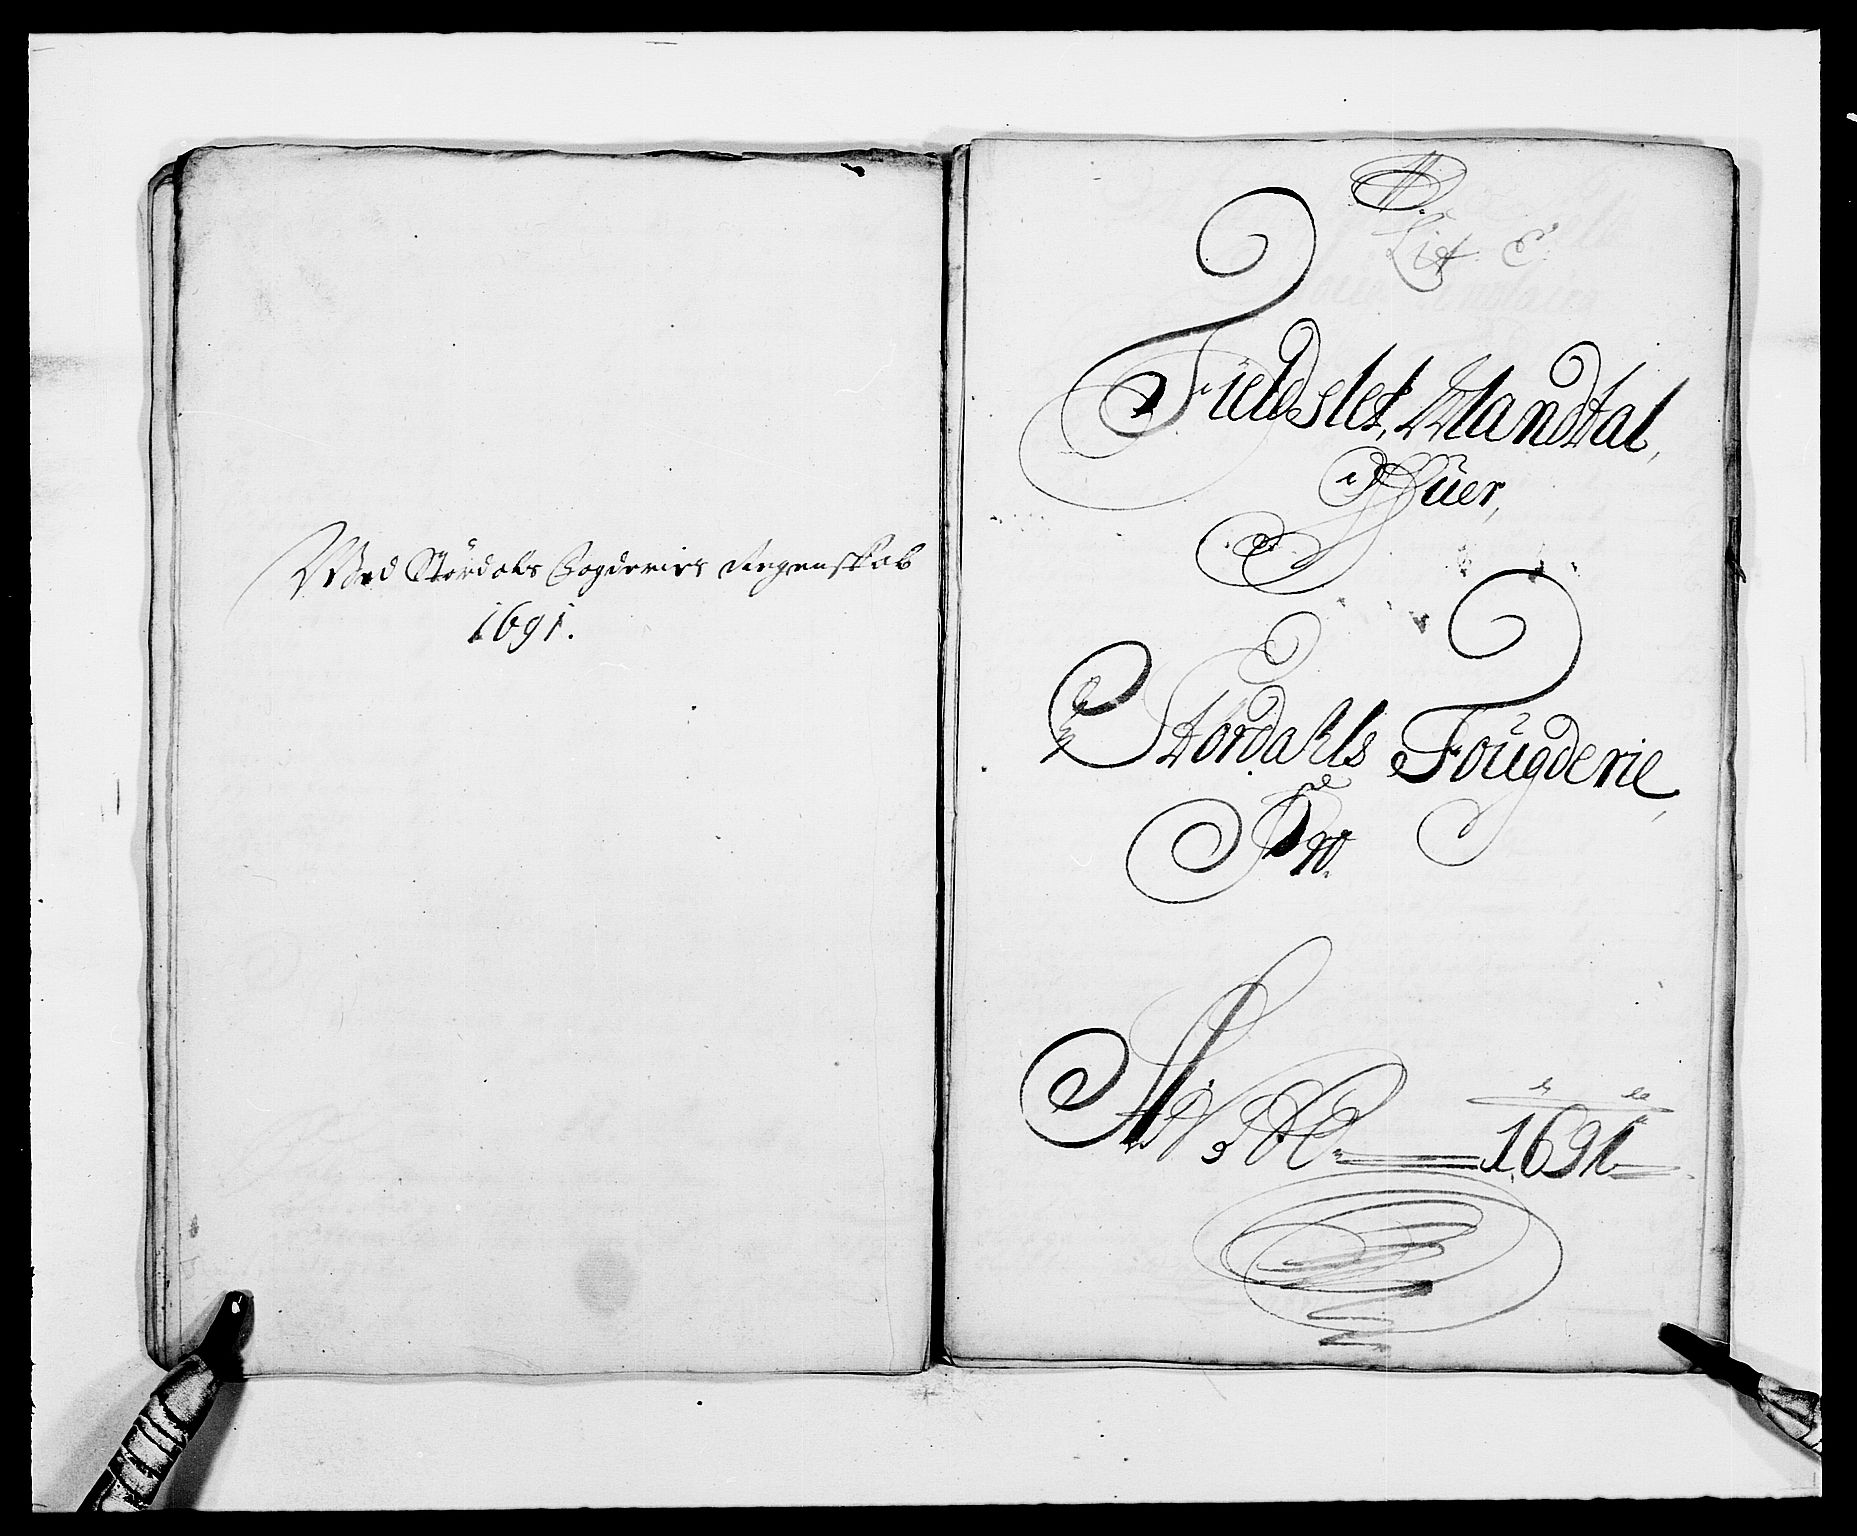 Med Stördahls Fogderies Regenskab
1691.
Lit E.
Fuldslet, Mandtal,
Offuer,
Stördahls Fougderie,
Pro
Anno 1691